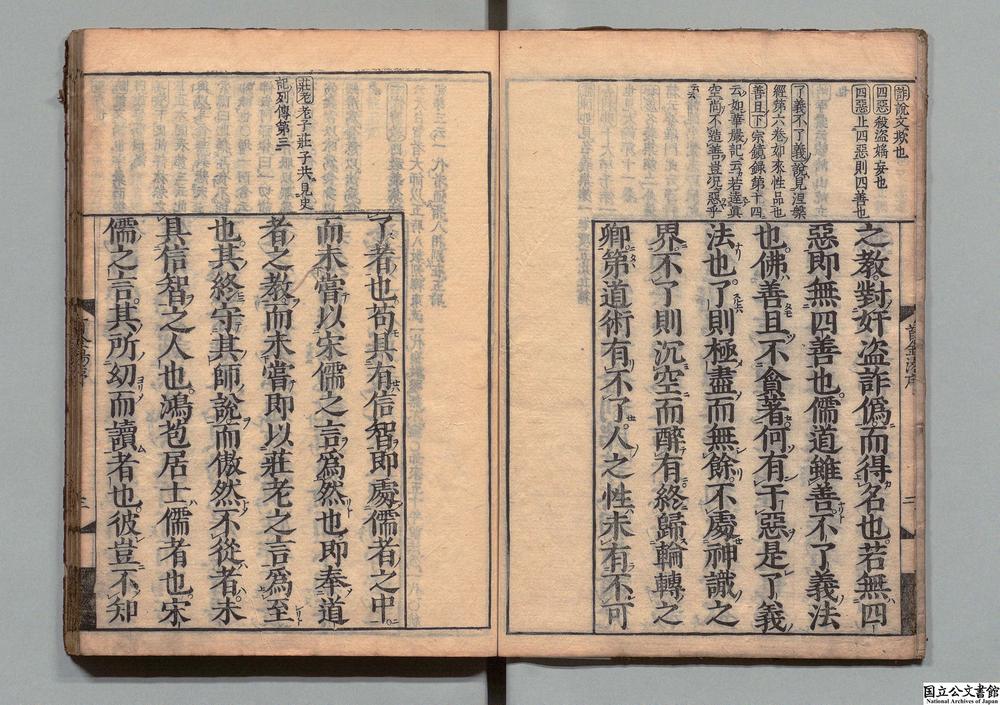 詐説文欺也
四惡殺盗婬妄也
四惡止四惡則四善也
了義不了義説見涅槃
經第六卷如來性品也
善且下宗鏡錄第十四
云如華嚴記云若達真
空尚不造善豈况惡乎
之教對奸盗詐僞而得名也若無四
惡即無四善也儒道雖善不了義法
也佛善且不貪著何有于惡是了義
法也了則極盡而無餘不處神識之
界不了則沉空而醉有終歸輪轉之
鄉第道術有不了人之性未有不可
莊老老子莊子共見史
記列傳第三
了者也苟其有信智即處儒者之中
而未嘗以宋儒之言爲然也即奉道
者之教而未嘗即以莊老之言爲至
也其終守其師説而傲然不從者未
具信智之人也鴻苞居士儒者也宋
儒之言其所幼而讀者也彼豈不知
国立公文書館
National Archives of Japan